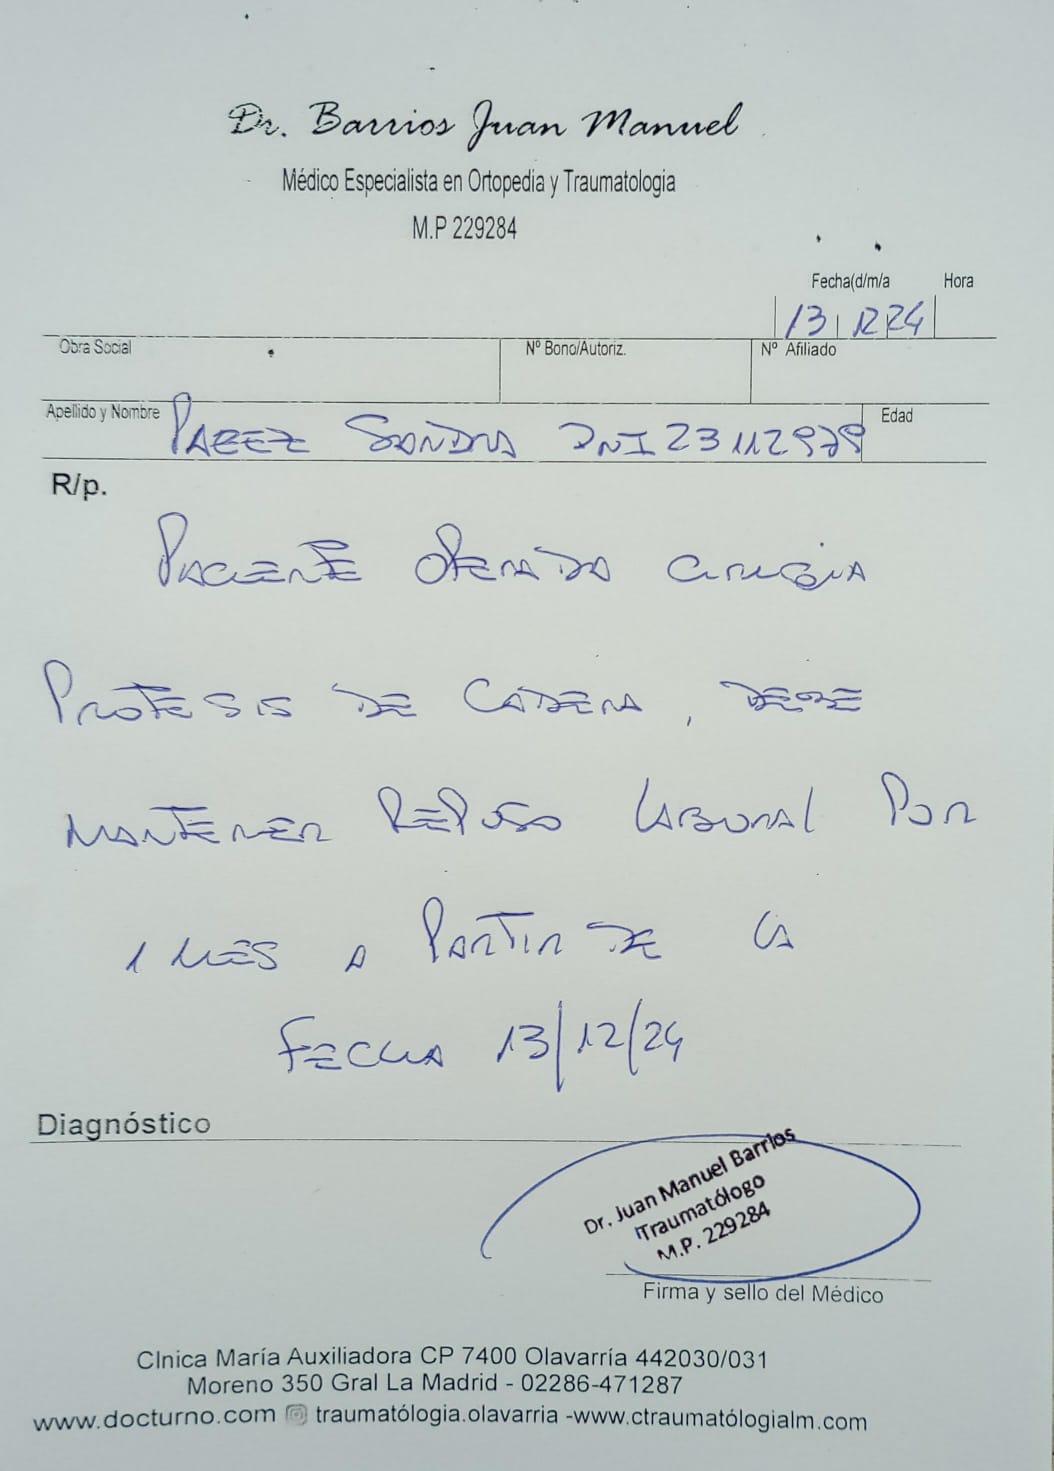 Dr. Barrios Juan Manuel
Médico Especialista en Ortopedia y Traumatologia
M.P 229284
Fecha(d/m/a Hora
13 12 24
Obra Social Nº Bono/Autoriz. Nº Afiliado
Apellido y Nombre PAEZ SANDRA DNI 23112979 Edad
R/p.
PACIENTE OPERADA CIRUGIA
PROTESIS DE CADERA, DEBE
MANTENER REPOSO LABORAL POR
1 MES A PARTIR DE LA
FECHA 13/12/24
Diagnóstico
Dr. Juan Manuel Barrios
Traumatólogo
M.P. 229284
Firma y sello del Médico
Clnica María Auxiliadora CP 7400 Olavarría 442030/031
Moreno 350 Gral La Madrid - 02286-471287
www.docturno.com traumatólogia.olavarria -www.ctraumatólogialm.com